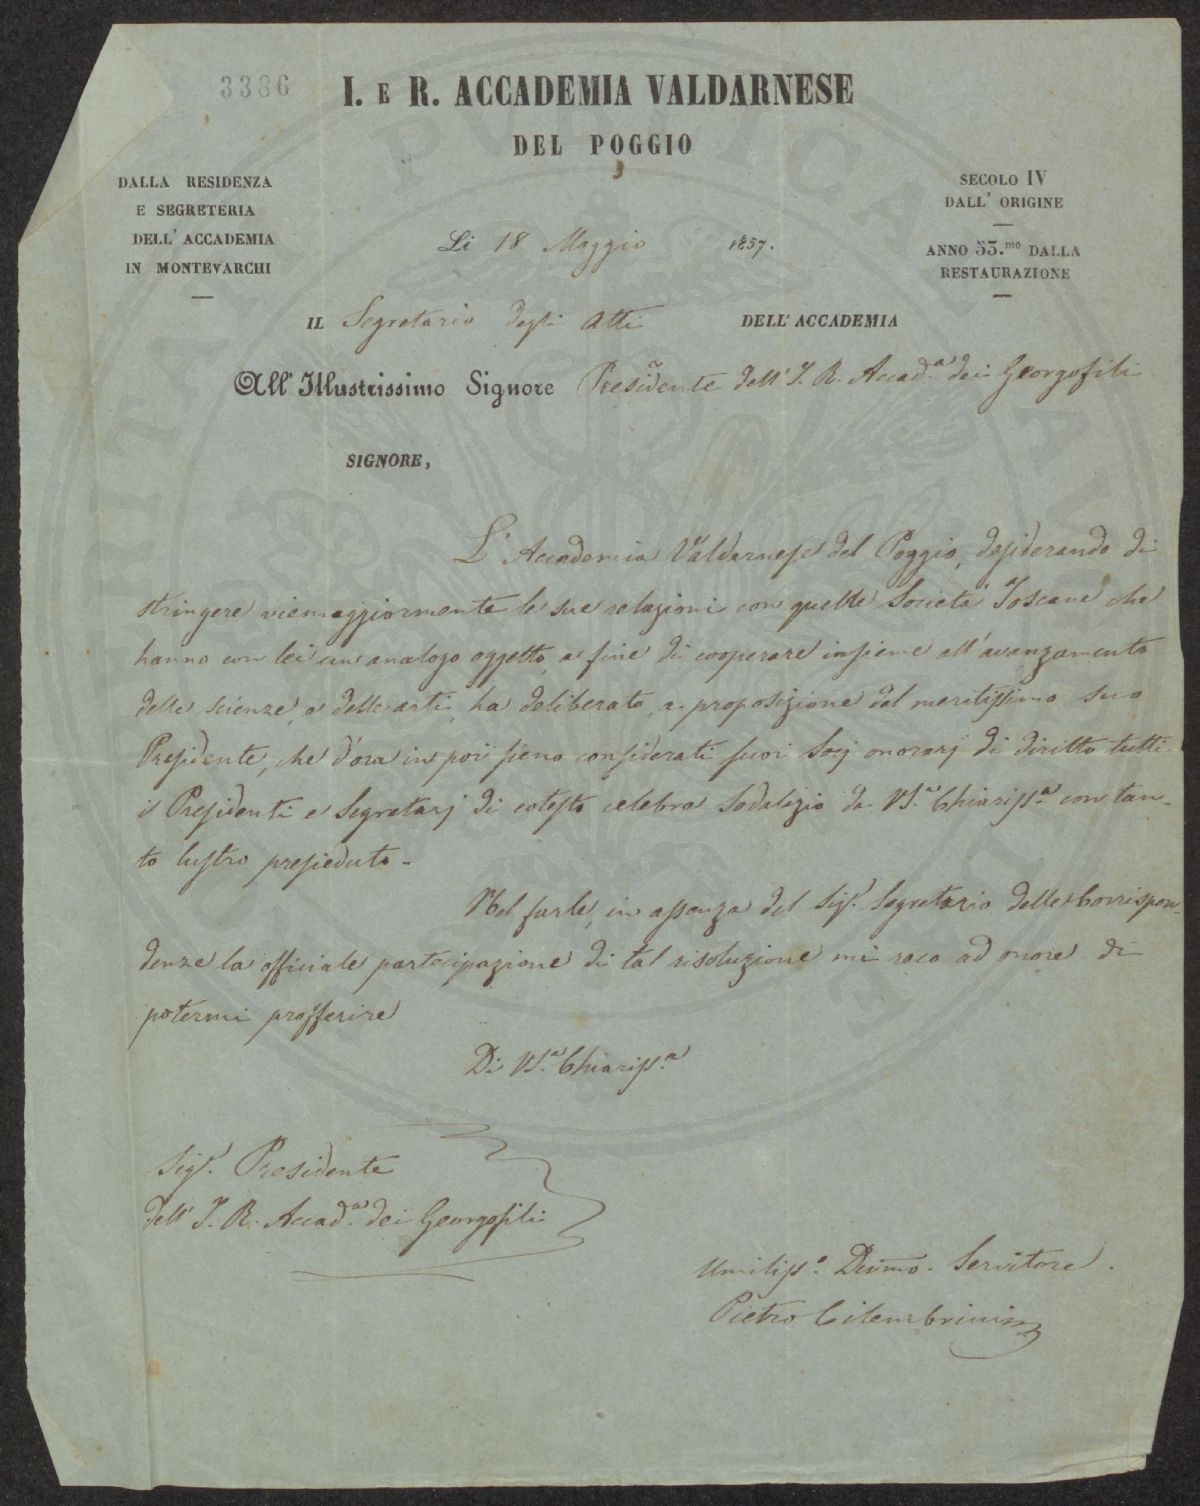 3386
I. E R. ACCADEMIA VALDARNESE
DEL POGGIO
DALLA RESIDENZA
E SEGRETERIA
DELL' ACCADEMIA
IN MONTEVARCHI
SECOLO IV
DALL' ORIGINE
ANNO 53.mo DALLA
RESTAURAZIONE
Li 18 Maggio 1857.
IL Segretario degli Atti DELL' ACCADEMIA
All' Illustrissimo Signore Presidente dell' I. R. Accad.a dei Georgofili
SIGNORE,
L' Accademia Valdarnese del Poggio, desiderando di
stringere viemaggiormente le sue relazioni con quelle Società Toscane che
hanno con lei un analogo oggetto, a fine di cooperare insieme all' avanzamento
delle scienze, e delle arti, ha deliberato, a proposizione del meritissimo suo
Presidente, che d'ora in poi sieno considerati suoi Socj onorarj di diritto tutti
i Presidenti e Segretarj di cotesto celebre Sodalizio da VS.a Chiariss.a con tan-
to lustro presieduto.
Nel farle, in assenza del Sig.r Segretario delle Corrispon-
denze la officiale partecipazione di tal risoluzione mi reco ad onore di
potermi profferire
Di VS.a Chiariss.a
Sig.r Presidente
dell' I. R. Accad.a dei Georgofili
Umiliss.o Devmo. Servitore.
Pietro